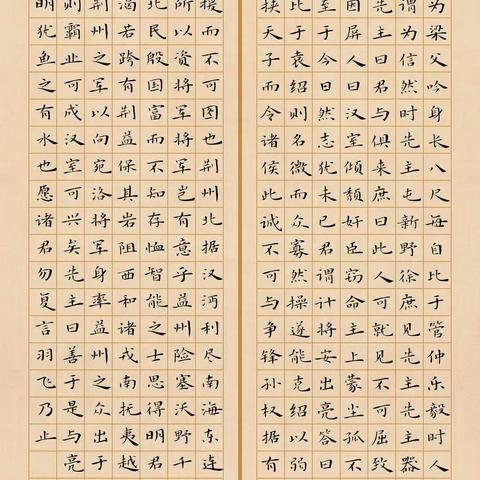 为梁父吟身长八尺每自比于管仲乐毅时人
谓为信然时先主屯新野徐庶见先主先主器
先主曰君与俱来庶曰此人可就见不可屈致
因屏人曰汉室倾颓奸臣窃命主上蒙尘孤不
至于今日然志犹未已君谓计将安出亮答曰
此于袁绍则名微而众寡然操遂能克绍以弱
挟天子而令诸侯此诚不可与争锋孙权据有
援而不可图也荆州北据汉沔利尽南海东连
所以资将军将军岂有意乎益州险塞沃野千
北民殷国富而不知存恤智能之士思得明君
渴若跨有荆益保其岩阻西和诸戎南抚夷越
荆州之军以向宛洛将军身率益州之众出于
则霸业可成汉室可兴矣先主曰善于是与亮
明犹鱼之有水也愿诸君勿复言羽飞乃止